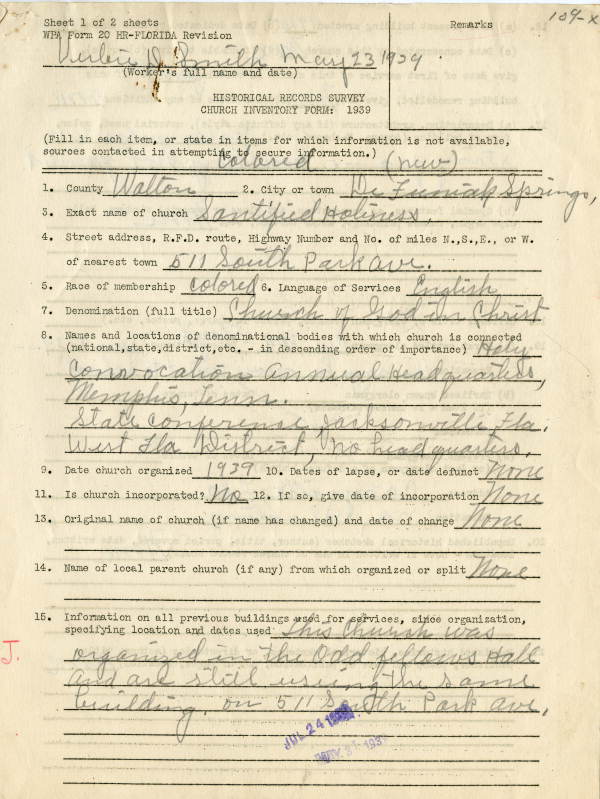 Sheet 1 of 2 sheets
Remarks
109-X
WPA Form 20 HR-FLORIDA Revision
D. Smith May 23 1939
(Worker's full name and date)
HISTORICAL RECORDS SURVEY
CHURCH INVENTORY FORM: 1939
(Fill in each item, or state in items for which information is not available,
sources contacted in attempting to secure information.)
Colored (new)
1. County Walton 2. City or town De Funiak Springs,
3. Exact name of church Santified Holiness.
4. Street address, R.F.D. route, Highway Number and No. of miles N.,S.,E., or W.
of nearest town 511 South Park Ave.
5. Race of membership Colored 6. Language of Services English
7. Denomination (full title) Church of God in Christ
8. Names and locations of denominational bodies with which church is connected
(national,state,district,etc. - in descending order of importance) Holy
Convocation Annual Headquarters,
Memphis, Tenn.
State Conference, Jacksonville, Fla.
West Fla District, No headquarters.
9. Date church organized 1939 10. Dates of lapse, or date defunct None
11. Is church incorporated? No 12. If so, give date of incorporation None
13. Original name of church (if name has changed) and date of change None
14. Name of local parent church (if any) from which organized or split None
15. Information on all previous buildings used for services, since organization,
specifying location and dates used This Church was
J.
organized in the Odd fellows Hall
and are still using the same
building. on 511 South Park Ave.
JUL 24 1939